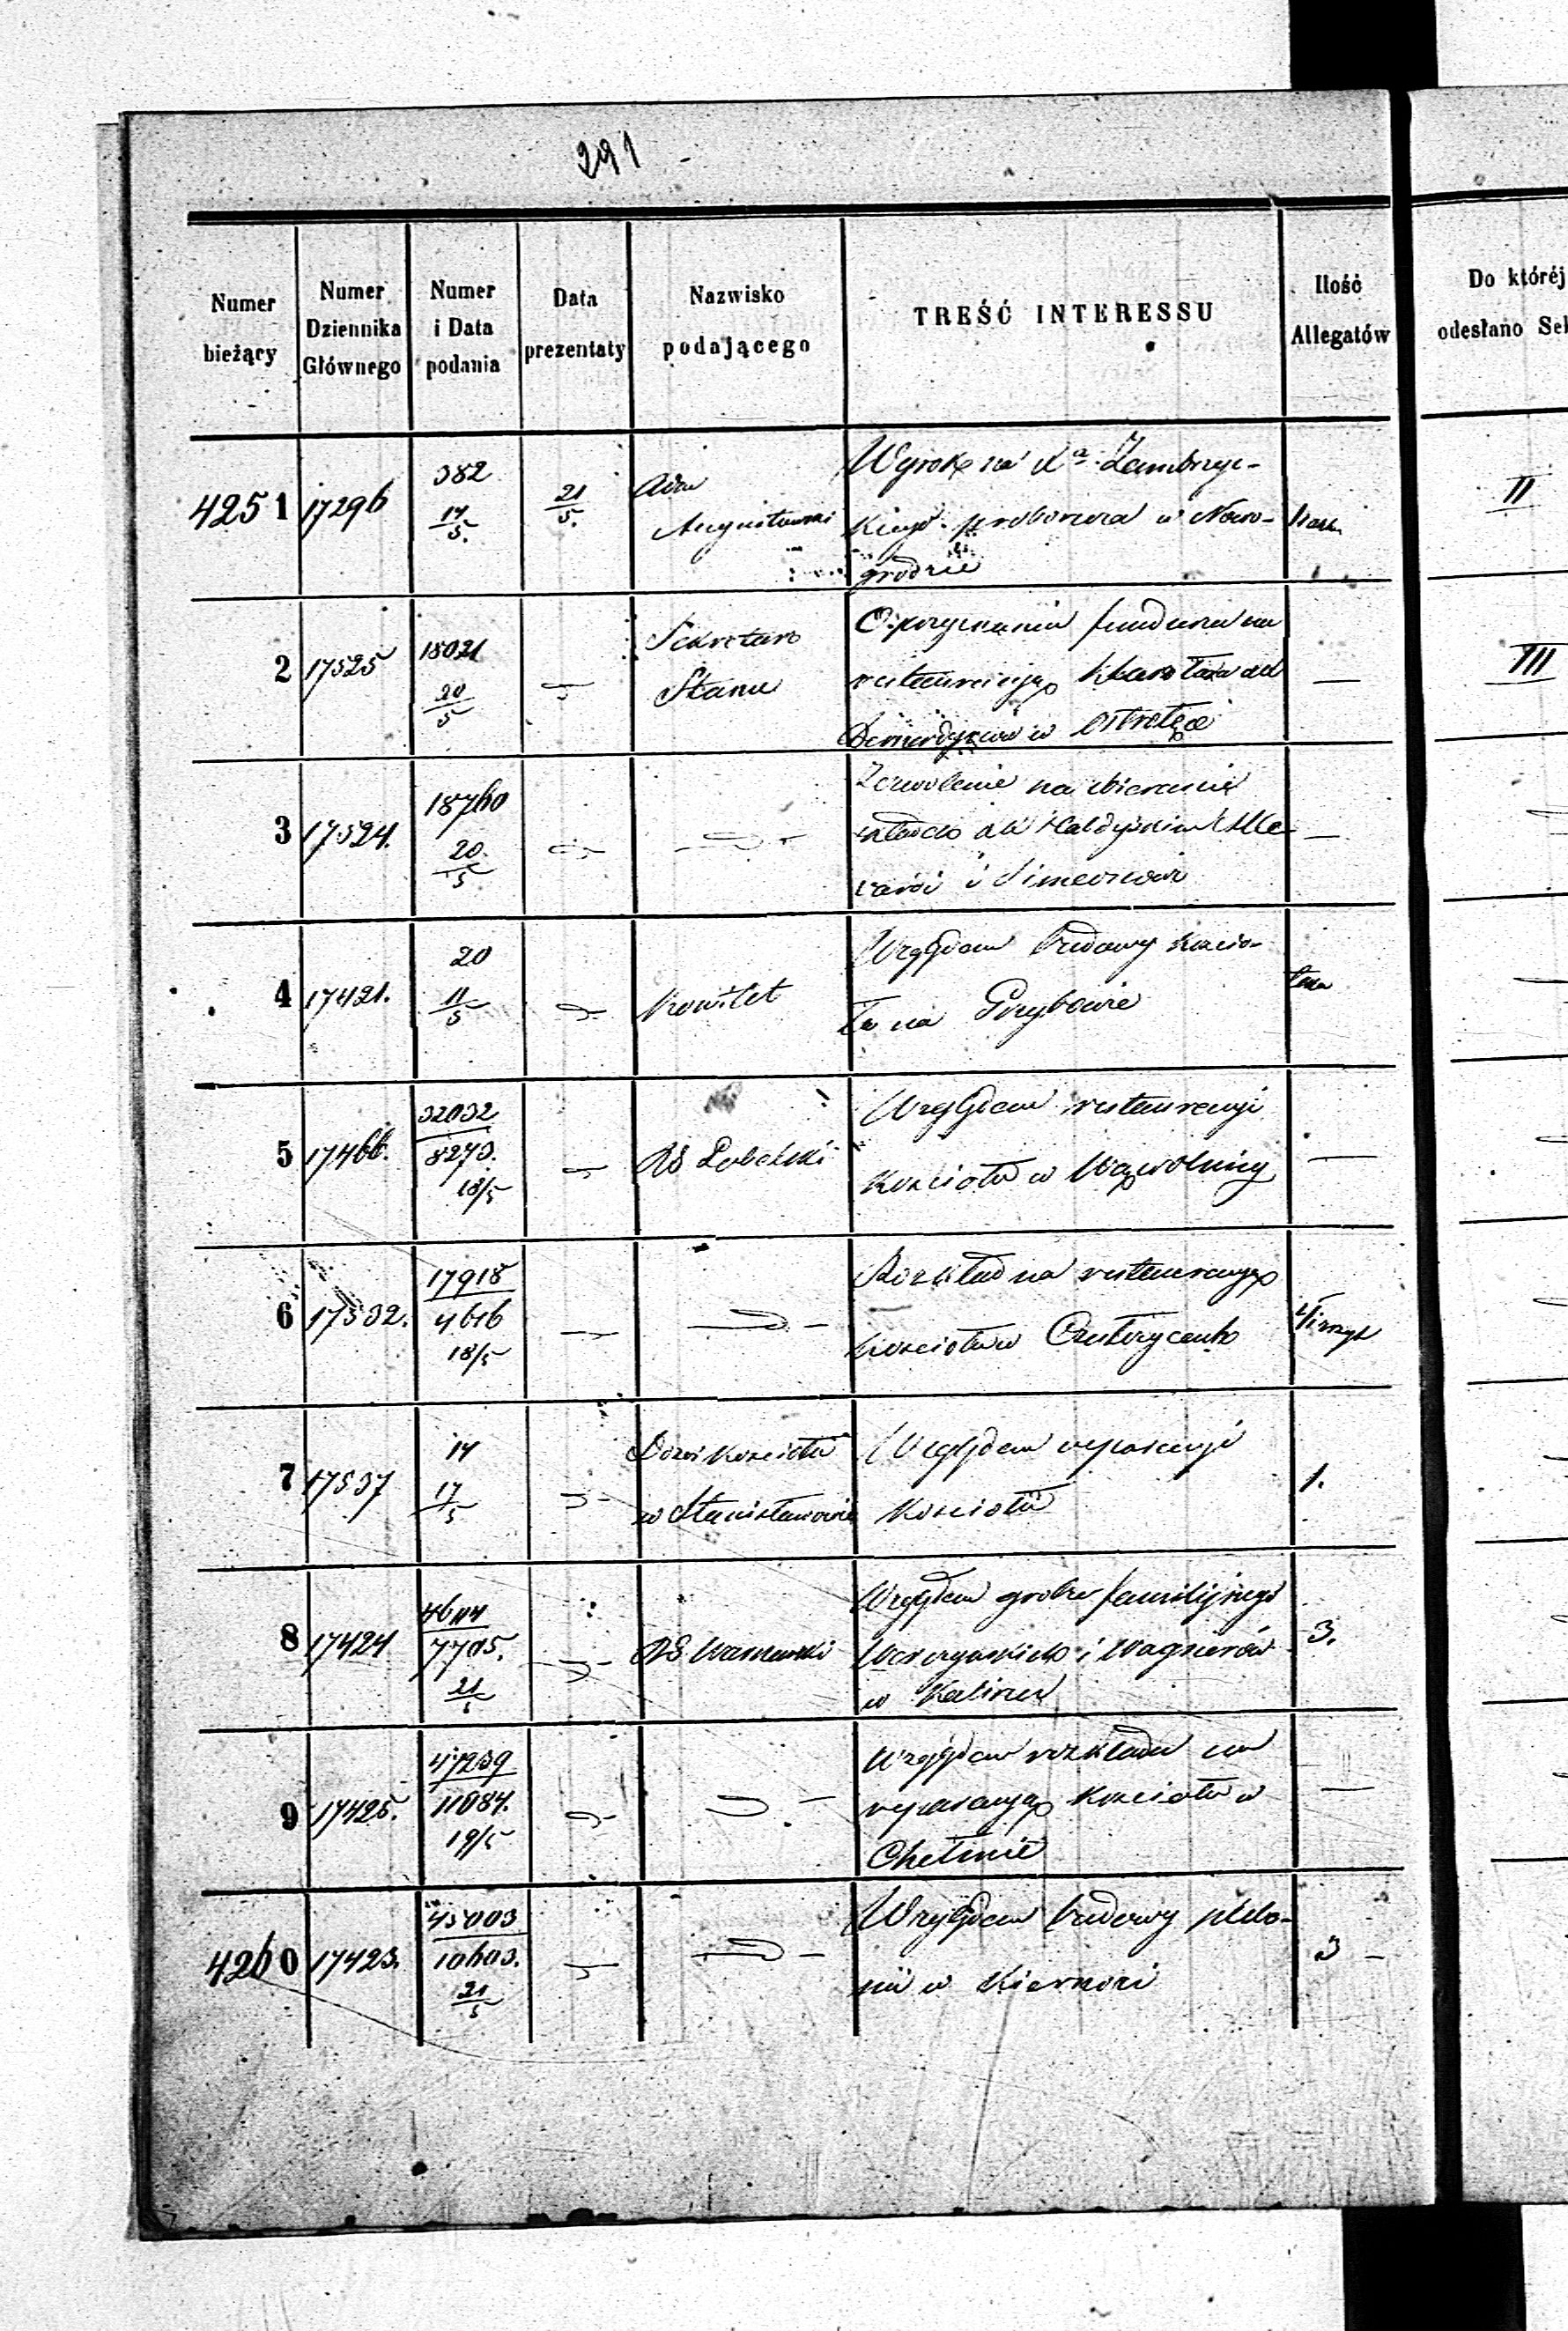 291
Numer bieżący
Numer Dziennika Głównego
Numer i Data podania
Data prezentaty
Nazwisko podającego
TREŚĆ INTERESSU
Ilość Allegatów
Do któréj
odesłano
4251 17296 382 17/5. 21/5. Augustowski
Wyrok na Xa Zambrzyc-
kiego proboszcza w Nowo-
grodzie
II
2 17525 18021 20/5 Sekretarz
Stanu
O przyznaniu funduszu na
restauracyją klasztoru
Bernardynów w Ostrołęce
—
III
3 17524. 18760 20/5
Zezwolenie na zbieranie
składek dla
i Simeonowi
—
4 17421. 20 11/5 Komitet
Względem budowy kościo-
ła na Grzybowie
5 17466. 32032 8273. 18/5 RG Lubelski
Względem restauracyi
Kościoła w Wąwolnicy
—
6 17532. 17918 4616 18/5
Rozkład na restauracyją
kościoła w
7 17537 14 17/5 Dozór Kościoła
w Stanisławowie
Względem reparacyi
Kościoła
1.
8 17424 7705. 21/5 RG Warszawski
Względem grobu familijnego
i Wagnerów
w Kaliszu
3.
9 17425. 47239 11084. 19/5
Względem rozkładu na
reparacyą Kościoła w
Chełmie
—
4260 17423. 45003 10603. 21/5
Względem budowy pleba-
nii w Kiernozi
3 –